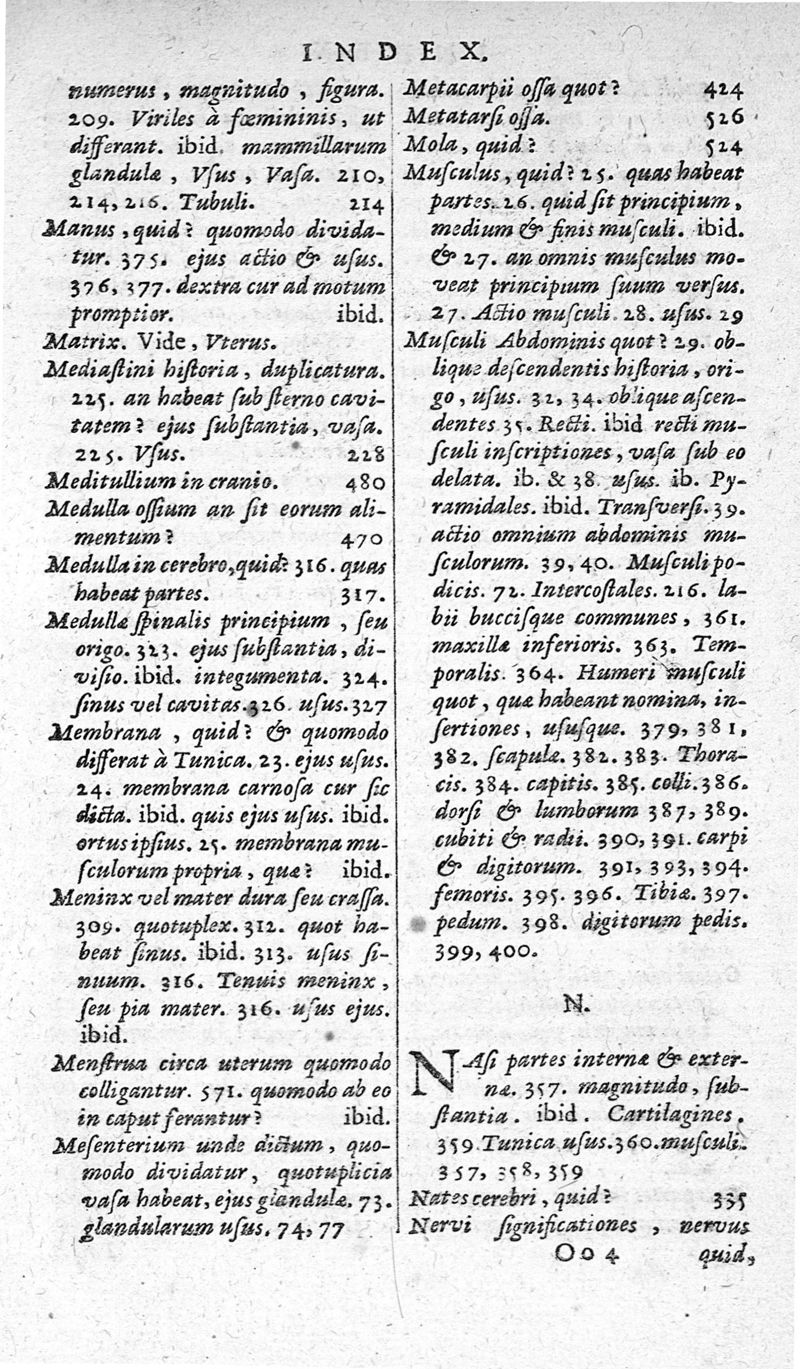 INDEX.
numerus, magnitudo, figura.
209. Viriles à fœmininis, ut
differant. ibid. mammillarum
glandulæ, Vſus, Vaſa. 210,
214, 216. Tubuli. 214
Manus, quid? quomodo divida-
tur. 375. ejus actio & uſus.
376, 377. dextra cur ad motum
promptior. ibid.
Matrix. Vide, Vterus.
Mediaſtini hiſtoria, duplicatura.
225. an habeat ſub ſterno cavi-
tatem? ejus ſubſtantia, vaſa.
225. Vſus. 228
Meditullium in cranio. 480
Medulla oſſium an ſit eorum ali-
mentum? 470
Medulla in cerebro, quid? 316. quas
habeat partes. 317.
Medullæ ſpinalis principium, ſeu
origo. 323. ejus ſubſtantia, di-
viſio. ibid. integumenta. 324.
ſinus vel cavitas. 326. uſus. 327
Membrana, quid? & quomodo
differat à Tunica. 23. ejus uſus.
24. membrana carnoſa cur ſic
dicta. ibid. quis ejus uſus. ibid.
ortus ipſius. 25. membrana mu-
ſculorum propria, quæ? ibid.
Meninx vel mater dura ſeu craſſa.
309. quotuplex. 312. quot ha-
beat ſinus. ibid. 313. uſus ſi-
nuum. 316. Tenuis meninx,
ſeu pia mater. 316. uſus ejus.
ibid.
Menſtrua circa uterum quomodo
colligantur. 571. quomodo ab eo
in caput ferantur? ibid.
Meſenterium unde dictum, quo-
modo dividatur, quotuplicia
vaſa habeat, ejus glandulæ. 73.
glandularum uſus. 74, 77
Metacarpii oſſa quot? 424
Metatarſi oſſa. 526
Mola, quid? 524
Muſculus, quid? 25. quas habeat
partes. 26. quid ſit principium,
medium & finis muſculi. ibid.
& 27. an omnis muſculus mo-
veat principium ſuum verſus.
27. Actio muſculi. 28. uſus. 29
Muſculi Abdominis quot? 29. ob-
lique deſcendentis hiſtoria, ori-
go, uſus. 32, 34. oblique aſcen-
dentes 35. Recti. ibid recti mu-
ſculi inſcriptiones, vaſa ſub eo
delata. ib. & 38. uſus. ib. Py-
ramidales. ibid. Tranſverſi. 39.
actio omnium abdominis mu-
ſculorum. 39, 40. Muſculi po-
dicis. 72. Intercoſtales. 216. la-
bii bucciſque communes, 361.
maxillæ inferioris. 363. Tem-
poralis. 364. Humeri muſculi
quot, quæ habeant nomina, in-
ſertiones, uſuſque. 379, 381,
382. ſcapulæ. 382. 383. Thora-
cis. 384. capitis. 385. colli. 386.
dorſi & lumborum 387, 389.
cubiti & radii. 390, 391. carpi
& digitorum. 391, 393, 394.
femoris. 395. 396. Tibiæ. 397.
pedum. 398. digitorum pedis.
399, 400.
N.
NAſi partes internæ & exter-
næ. 357. magnitudo, ſub-
ſtantia. ibid. Cartilagines.
359. Tunica uſus. 360. muſculi.
357, 358, 359
Nates cerebri, quid? 335
Nervi ſignificationes, nervus
Oo 4 quid,